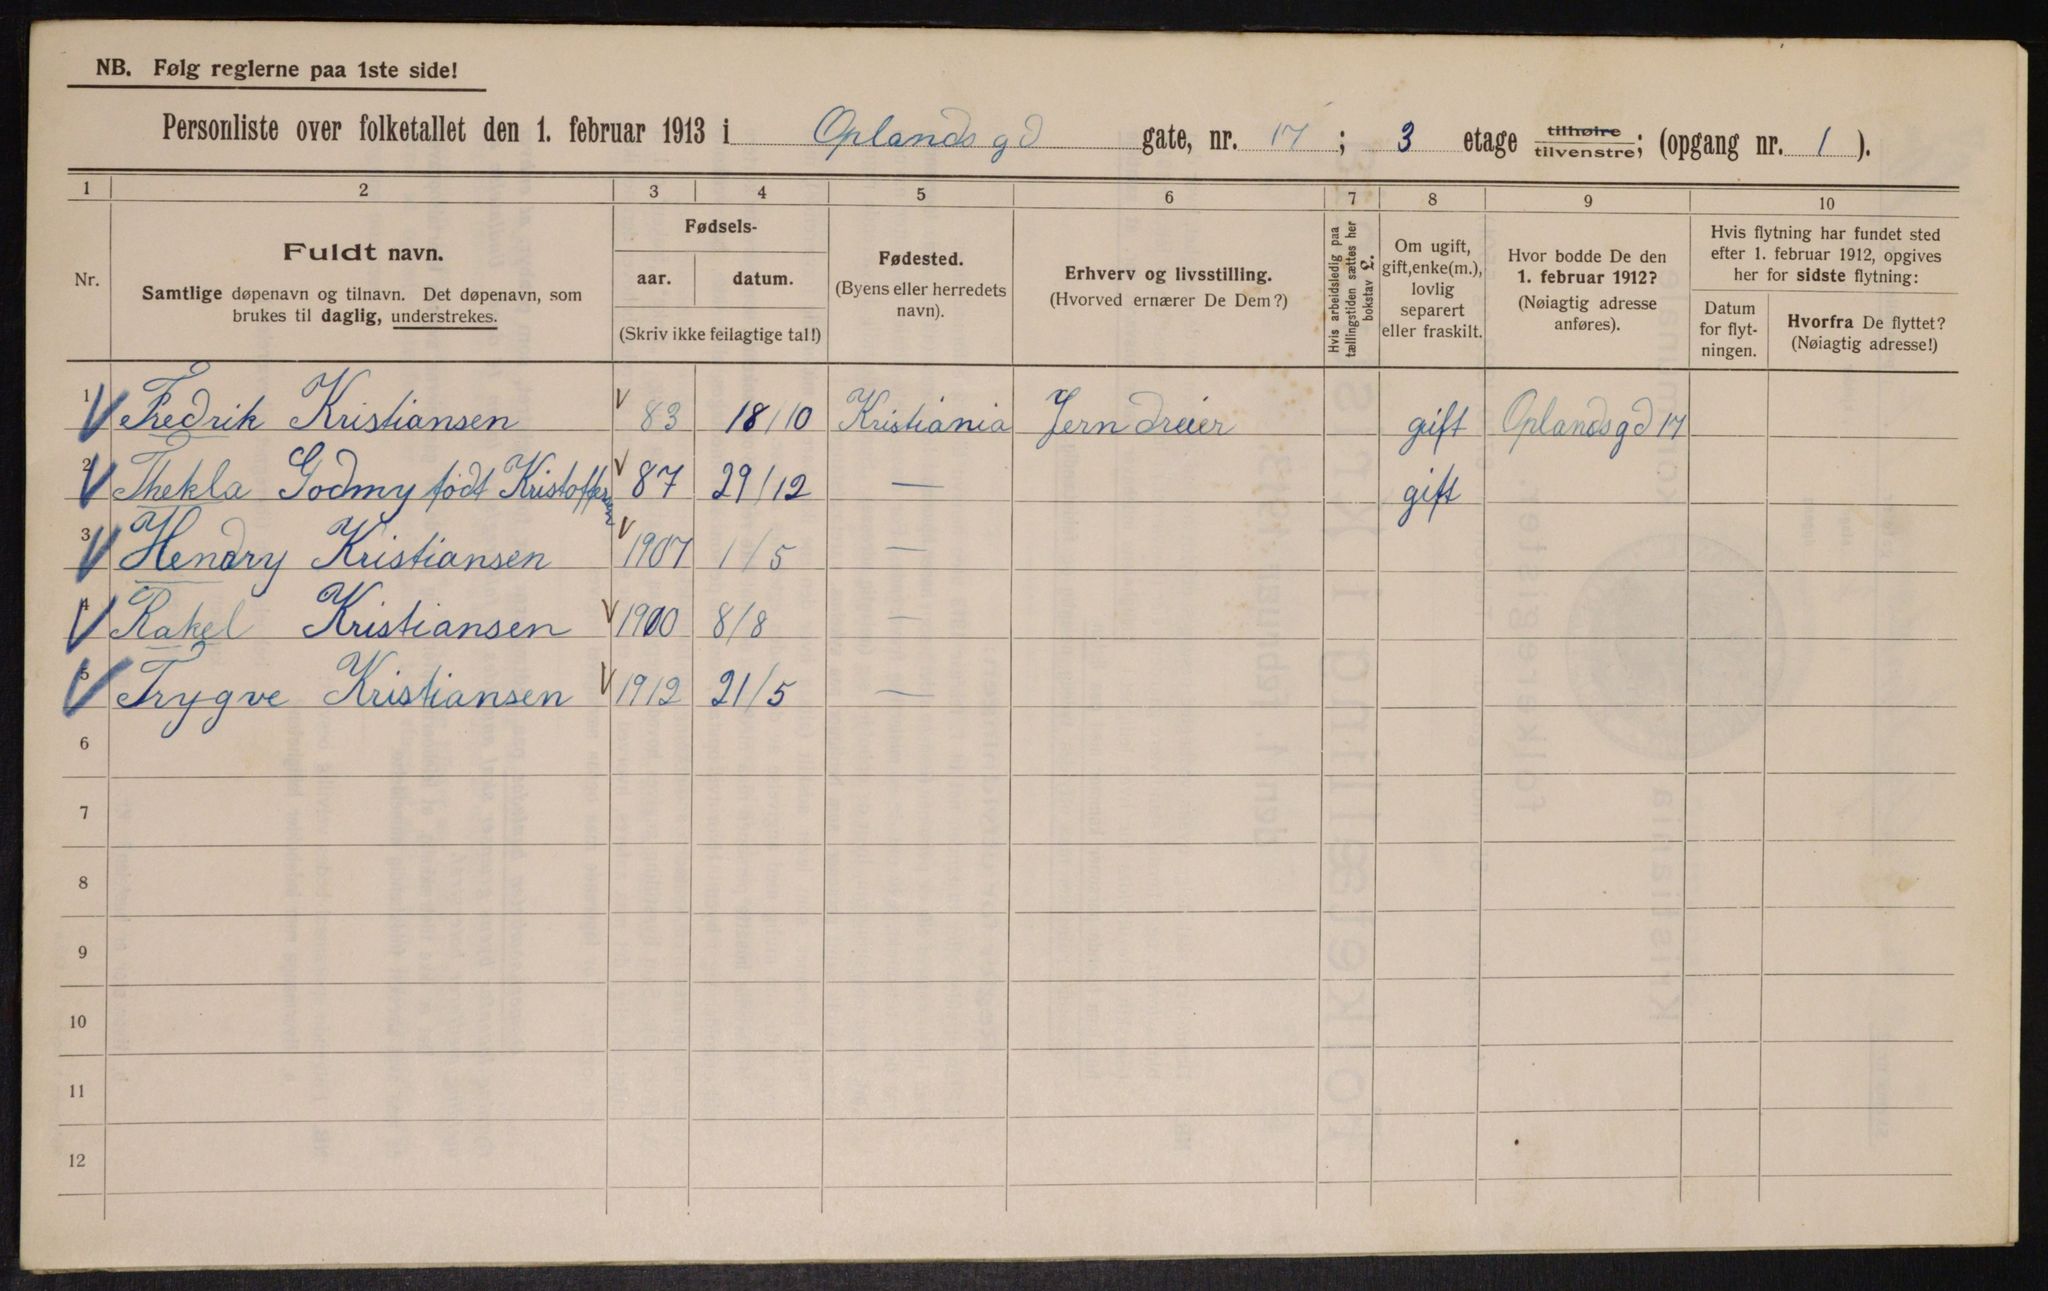 NB. Følg reglerne paa 1ste side!
Personliste over folketallet den 1. februar 1913 i Oplandsgd gate, nr. 17; 3 etage tilhøire tilvenstre; (opgang nr. 1).
1 2 3 4 5 6 7 8 9 10
Nr.
Fuldt navn.
Samtlige døpenavn og tilnavn. Det døpenavn, som
brukes til daglig, understrekes.
Fødsels-
aar. datum.
(Skriv ikke feilagtige tal!)
Fødested.
(Byens eller herredets
navn).
Erhverv og livsstilling.
(Hvorved ernærer De Dem?)
Hvis arbeidsledig paa
tællingstiden sættes her
bokstav £.
Om ugift,
gift, enke(m.),
lovlig
separert
eller fraskilt.
Hvor bodde De den
1. februar 1912?
(Nøiagtig adresse
anføres).
Hvis flytning har fundet sted
efter 1. februar 1912, opgives
her for sidste flytning:
Datum
for flyt-
ningen.
Hvorfra De flyttet?
(Nøiagtig adresse!)
1 Fredrik Kristiansen 83 18/10 Kristiania Jerndreier gift Oplandsgd 17
2 Thekla Godmy født Kristoffersen 87 29/12 — gift
3 Hendry Kristiansen 1907 1/5 —
4 Rakel Kristiansen 1900 8/8 —
5 Trygve Kristiansen 1912 21/5 —
6
7
8
9
10
11
12